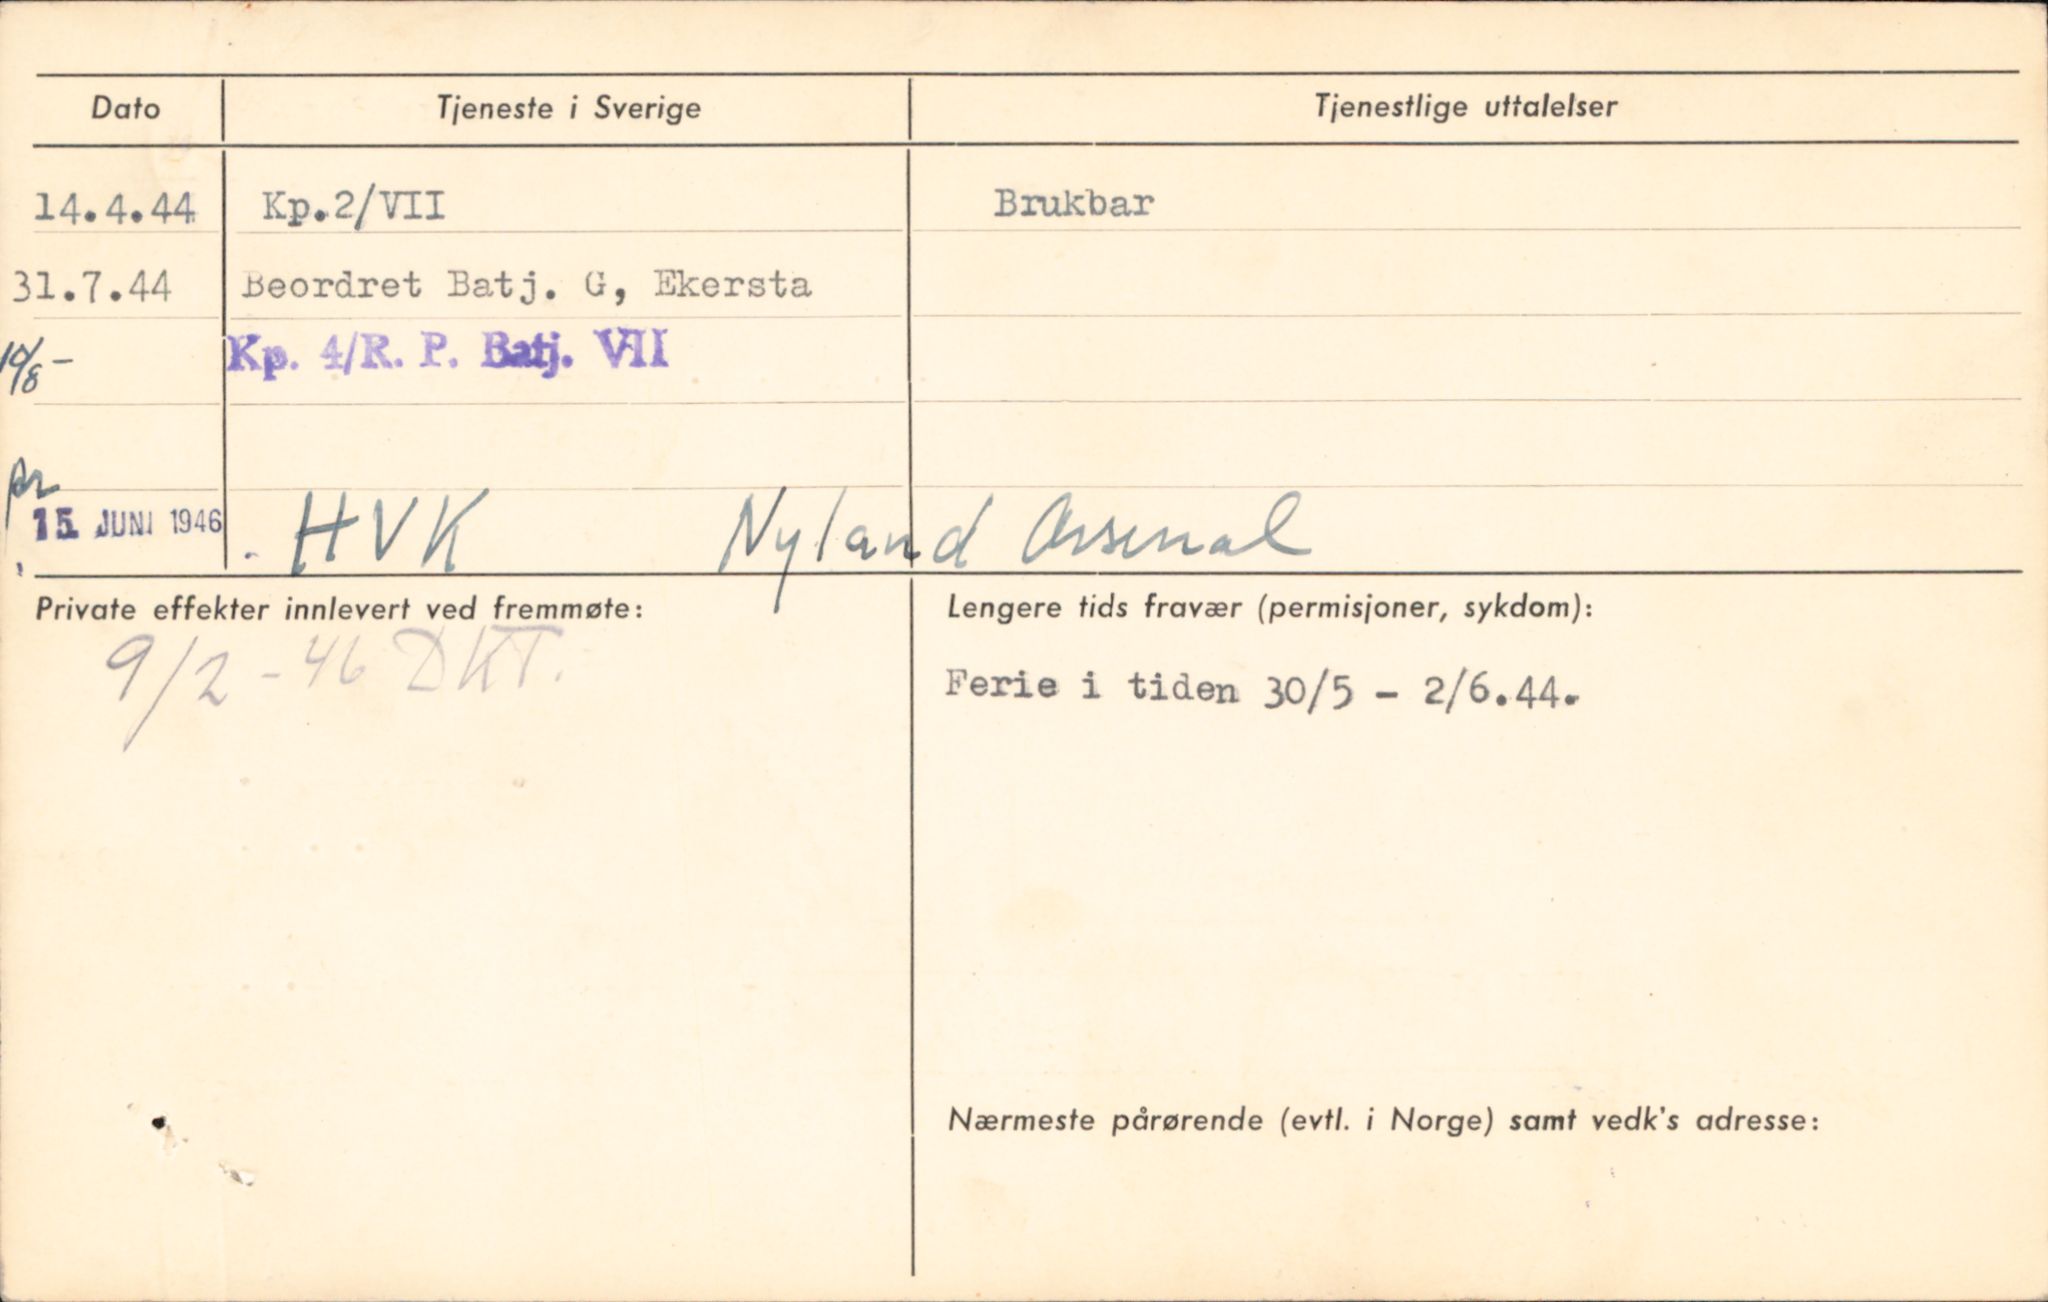 Dato Tjeneste i Sverige Tjenestlige uttalelser
14.4.44 Kp.2/VII Brukbar
31.7.44 Beordret Batj. G, Ekersta
10/8 - Kp. 4/R. P. Batj. VII
pr
15 JUNI 1946 . HVK Nyland Arsenal
Private effekter innlevert ved fremmøte: Lengere tids fravær (permisjoner, sykdom):
9/2 - 46 DKT. Ferie i tiden 30/5 - 2/6.44.
Nærmeste pårørende (evtl. i Norge) samt vedk's adresse: